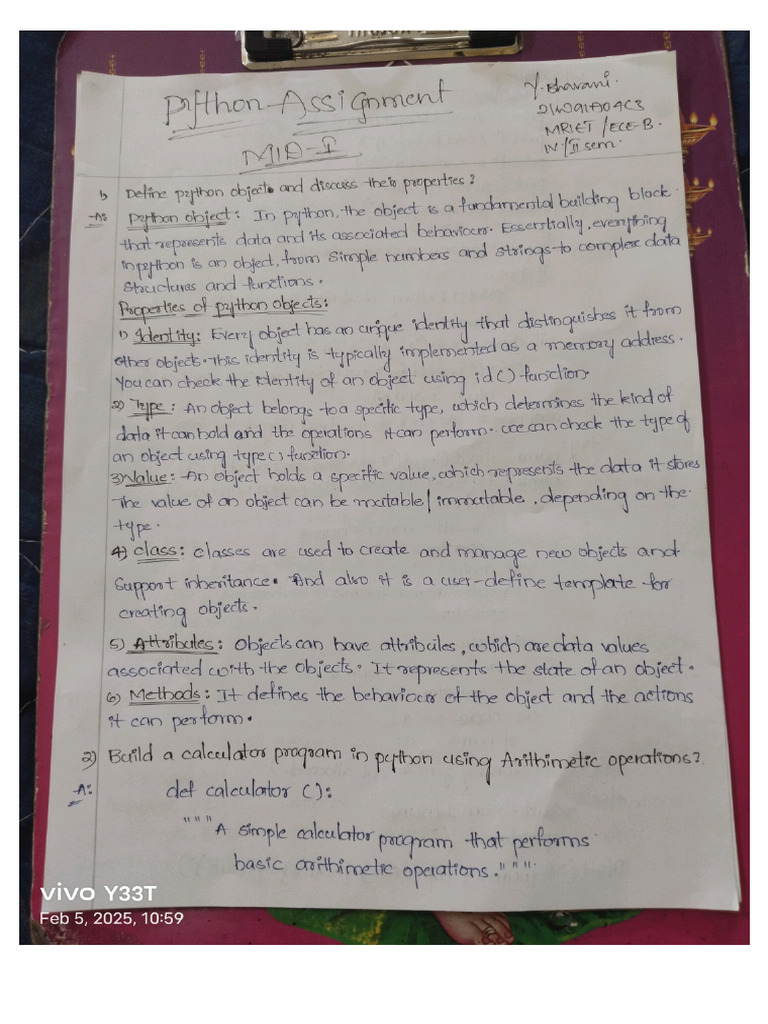 Python-Assignment
MID-I
Y. Bhavani.
MRIET/ECE-B.
IV/II sem.
1) Define python objects and discuss their properties?
A: Python object: In python, the object is a fundamental building block
that represents data and its associated behaviour. Essentially, everything
in python is an object, from simple numbers and strings to complex data
structures and functions.
Properties of python objects:
1) Identity: Every object has an unique identity that distinguishes it from
other objects. This identity is typically implemented as a memory address.
You can check the identity of an object using id() function.
2) Type: An object belongs to a specific type, which determines the kind of
data it can hold and the operations it can perform. we can check the type of
an object using type() function.
3) Value: An object holds a specific value, which represents the data it stores
The value of an object can be mutable/immutable, depending on the
type.
4) Class: Classes are used to create and manage new objects and
support inheritance. And also it is a user-define template for
creating objects.
5) Attributes: Objects can have attributes, which are data values
associated with the objects. It represents the state of an object.
6) Methods: It defines the behaviour of the object and the actions
it can perform.
2) Build a calculator program in python using Arithimetic operations?
A: def calculator ():
"""A simple calculator program that performs
basic arithimetic operations."""
vivo Y33T
Feb 5, 2025, 10:59